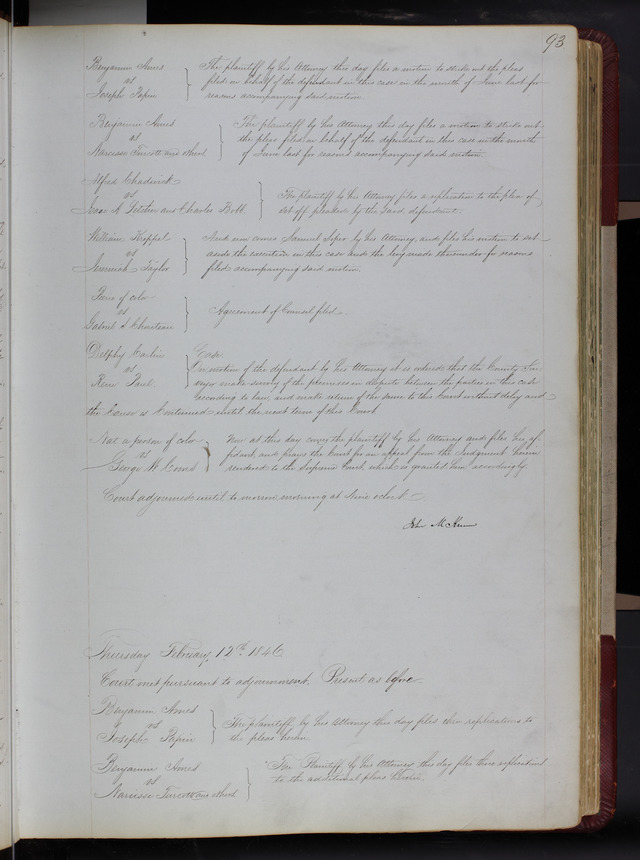 93
Benjamin Ames
vs
Joseph Papin
The plaintiff by his Attorney this day files a motion to strike out the pleas
filed on behalf of the defendant in this case in the month of June last for
reasons accompanying said motion.
Benjamin Ames
vs
Narcisse
The plaintiff by his Attorney this day files a motion to strike out
the pleas filed on behalf of the defendant in this case in the month
of June last for reasons accompanying said motion.
Alfred Chadwick
vs
and Charles
The plaintiff by his Attorney files a replication to the plea of
set off pleaded by the said defendant.
William
vs
Jeremiah Taylor
And now comes Samuel by his Attorney and files his motion to set
aside the execution in this case and the levy made thereunder for reasons
filed accompanying said motion.
of color
vs
Gabriel S Chouteau
Agreement of Counsel filed.
Delphy Carlin
vs
Rene Paul.
Case
On motion of the defendant by his Attorney it is ordered that the County Sur
veyor make survey of the premises in dispute between the parties in this case
according to law, and make return of the same to this Court without delay and
the Cause is Continued until the next term of this Court
Nat a person of color
vs
George W Coons
Now at this day comes the plaintiff by his Attorney and files his af
fidavit and prays the Court for an appeal from the Judgment herein
rendered to the Supreme Court, which is granted him accordingly.
Court adjourned until to morrow morning at Nine oclock
John M Krum
Thursday February 12th 1846
Court met pursuant to adjournment. Present as before
Benjamin Ames
vs
Joseph Papin
The plaintiff by his Attorney this day files their replications to
the pleas herein.
Benjamin Ames
vs
Narcisse
The Plaintiff by his Attorney this day files his replication
to the additional pleas herein.